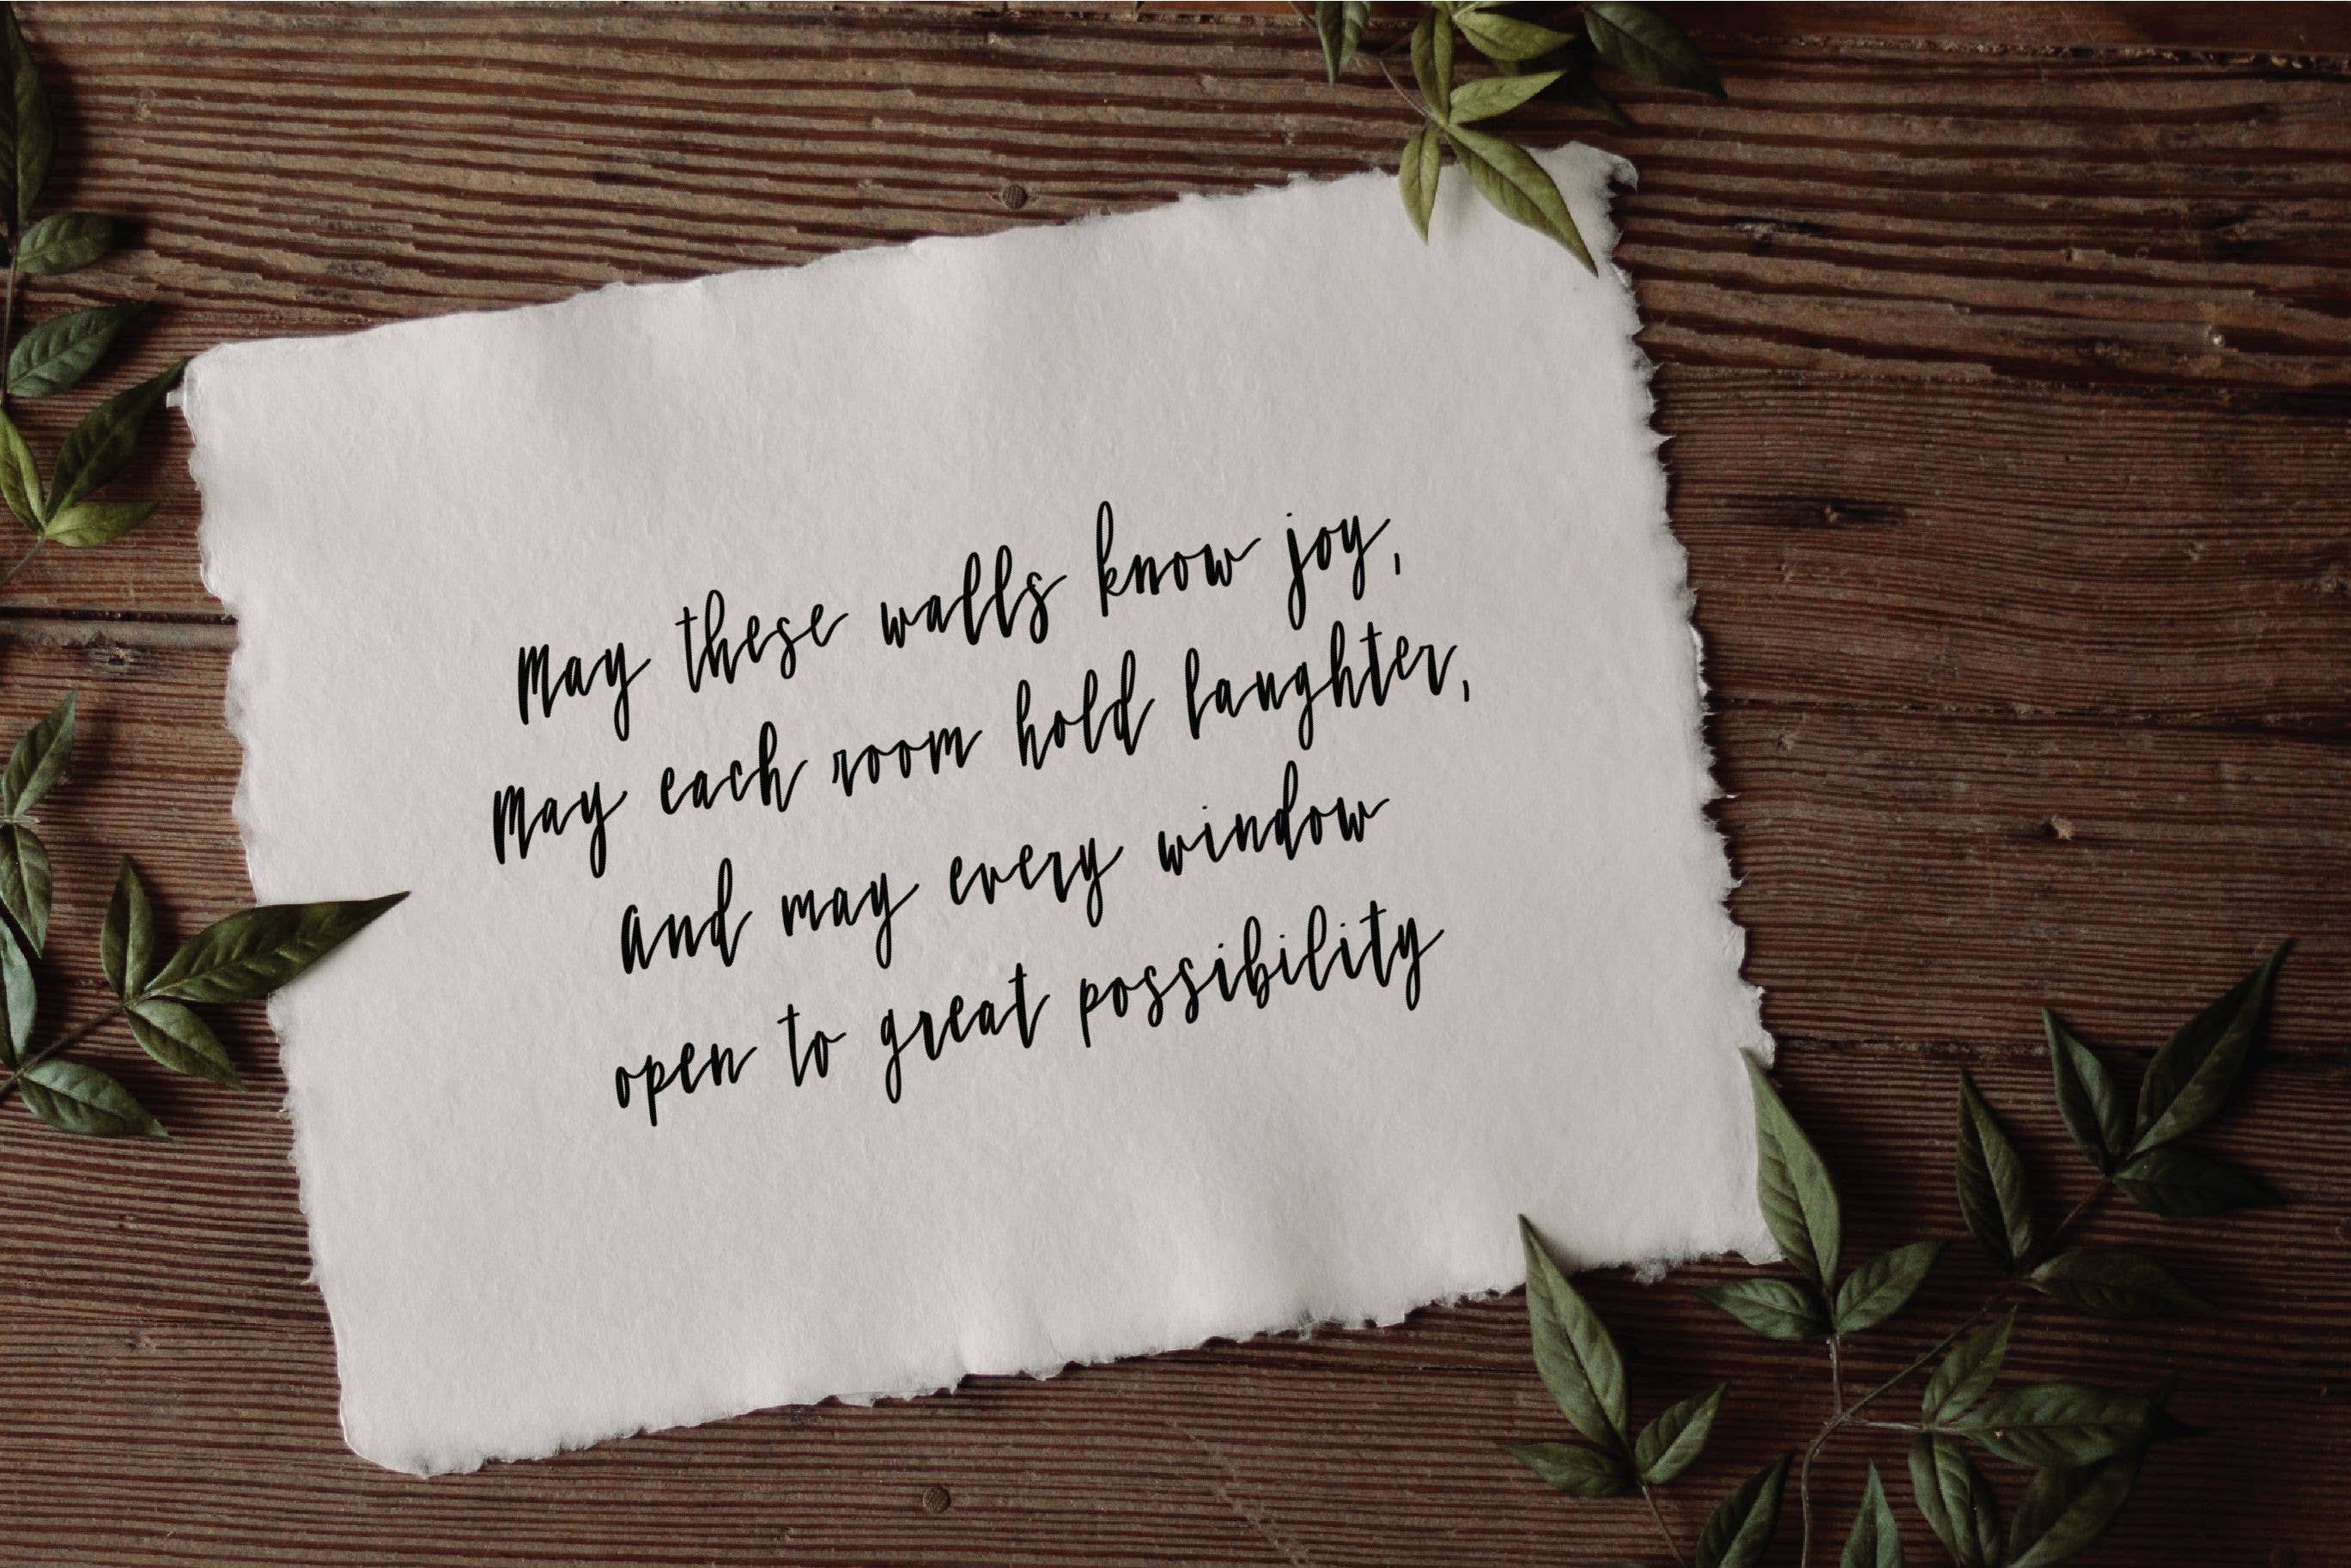 May these walls know joy,
May each room hold laughter,
And may every window
open to great possibility